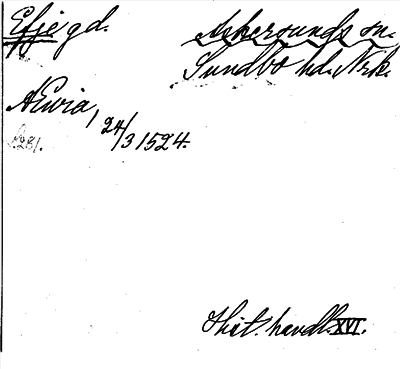 Efje gd. Askersunds sn.
Sundbo hd. Nrk.
Alvia, 24/3 1524.
s. 281.
Hist. handl. XVI.